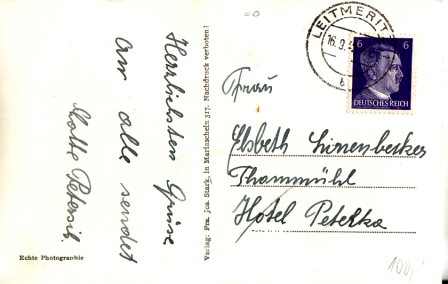 Herzlichsten Grüsse
an alle sendet
Echte Photographie
Verlag: Fra. Jos. Stark, in Mariaschein 317. Nachdruck verboten!
LEITMERITZ
16.9.
b
6 6
DEUTSCHES REICH
Frau
Elsbeth
Thammühl
Hotel Peterka
100,-